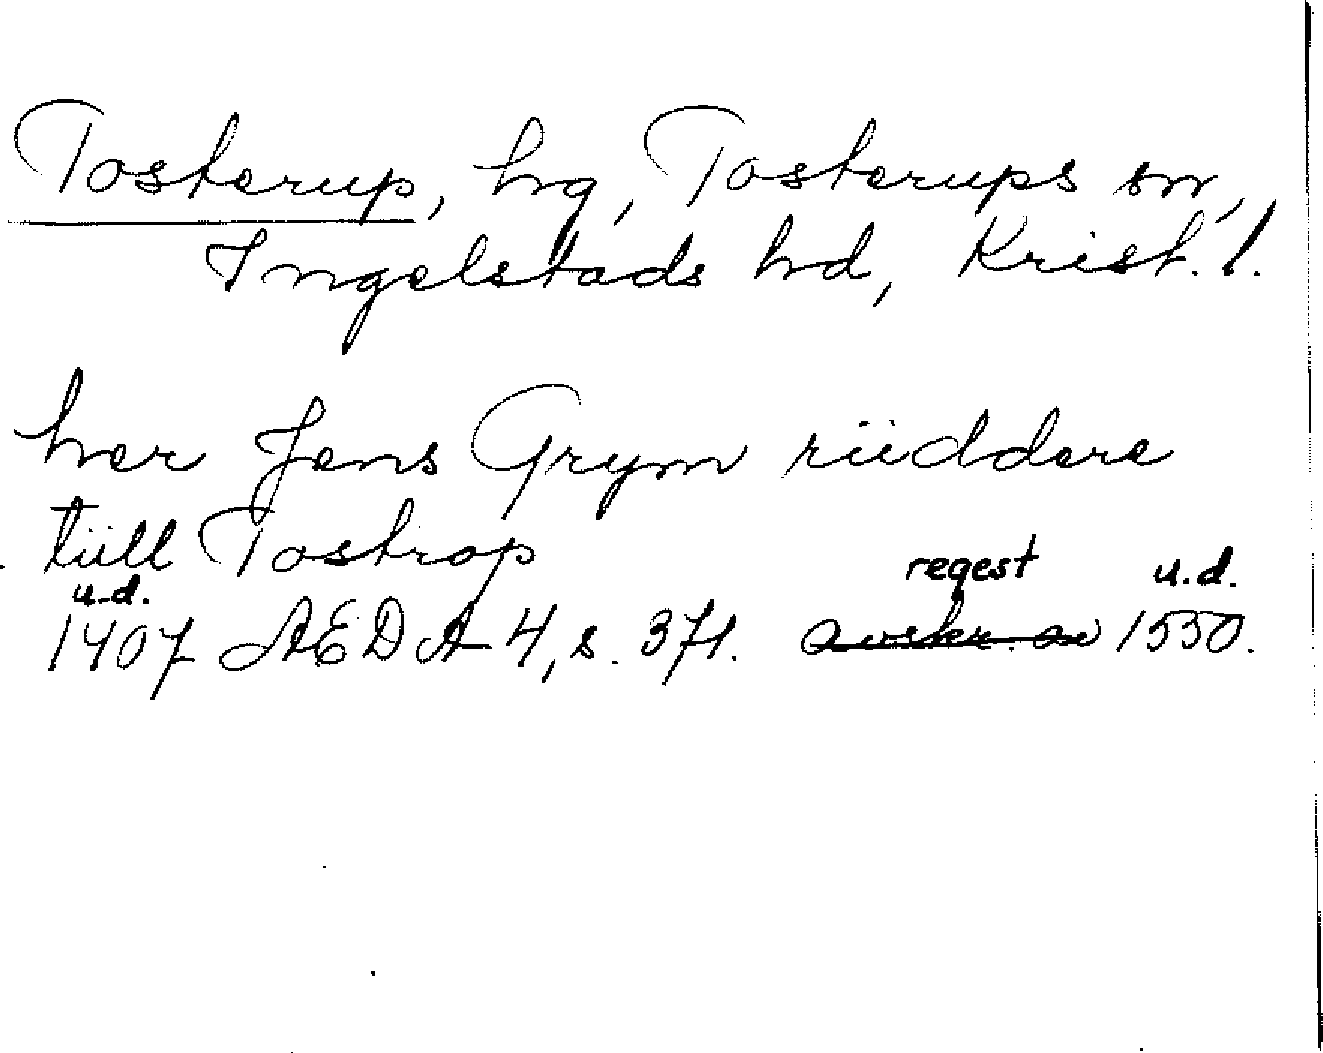 Tosterup, hg, Tosterups sn,
Ingelstads hd, Krist. l.
her Jens Grym riiddere
tiill Tostrop
regest u.d.
u.d.
1407 AEDA 4, s. 371. avskr. av 1550.